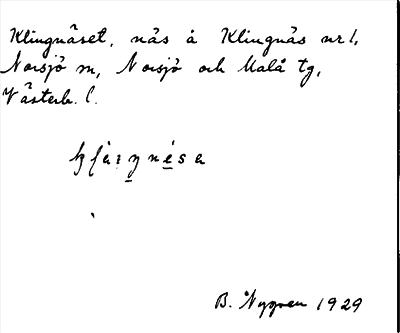 Klingnäset, näs å Klingnäs nr 1,
Norsjö sn, Norsjö och Malå tg,
Västerb. l.
B. Nygren 1929